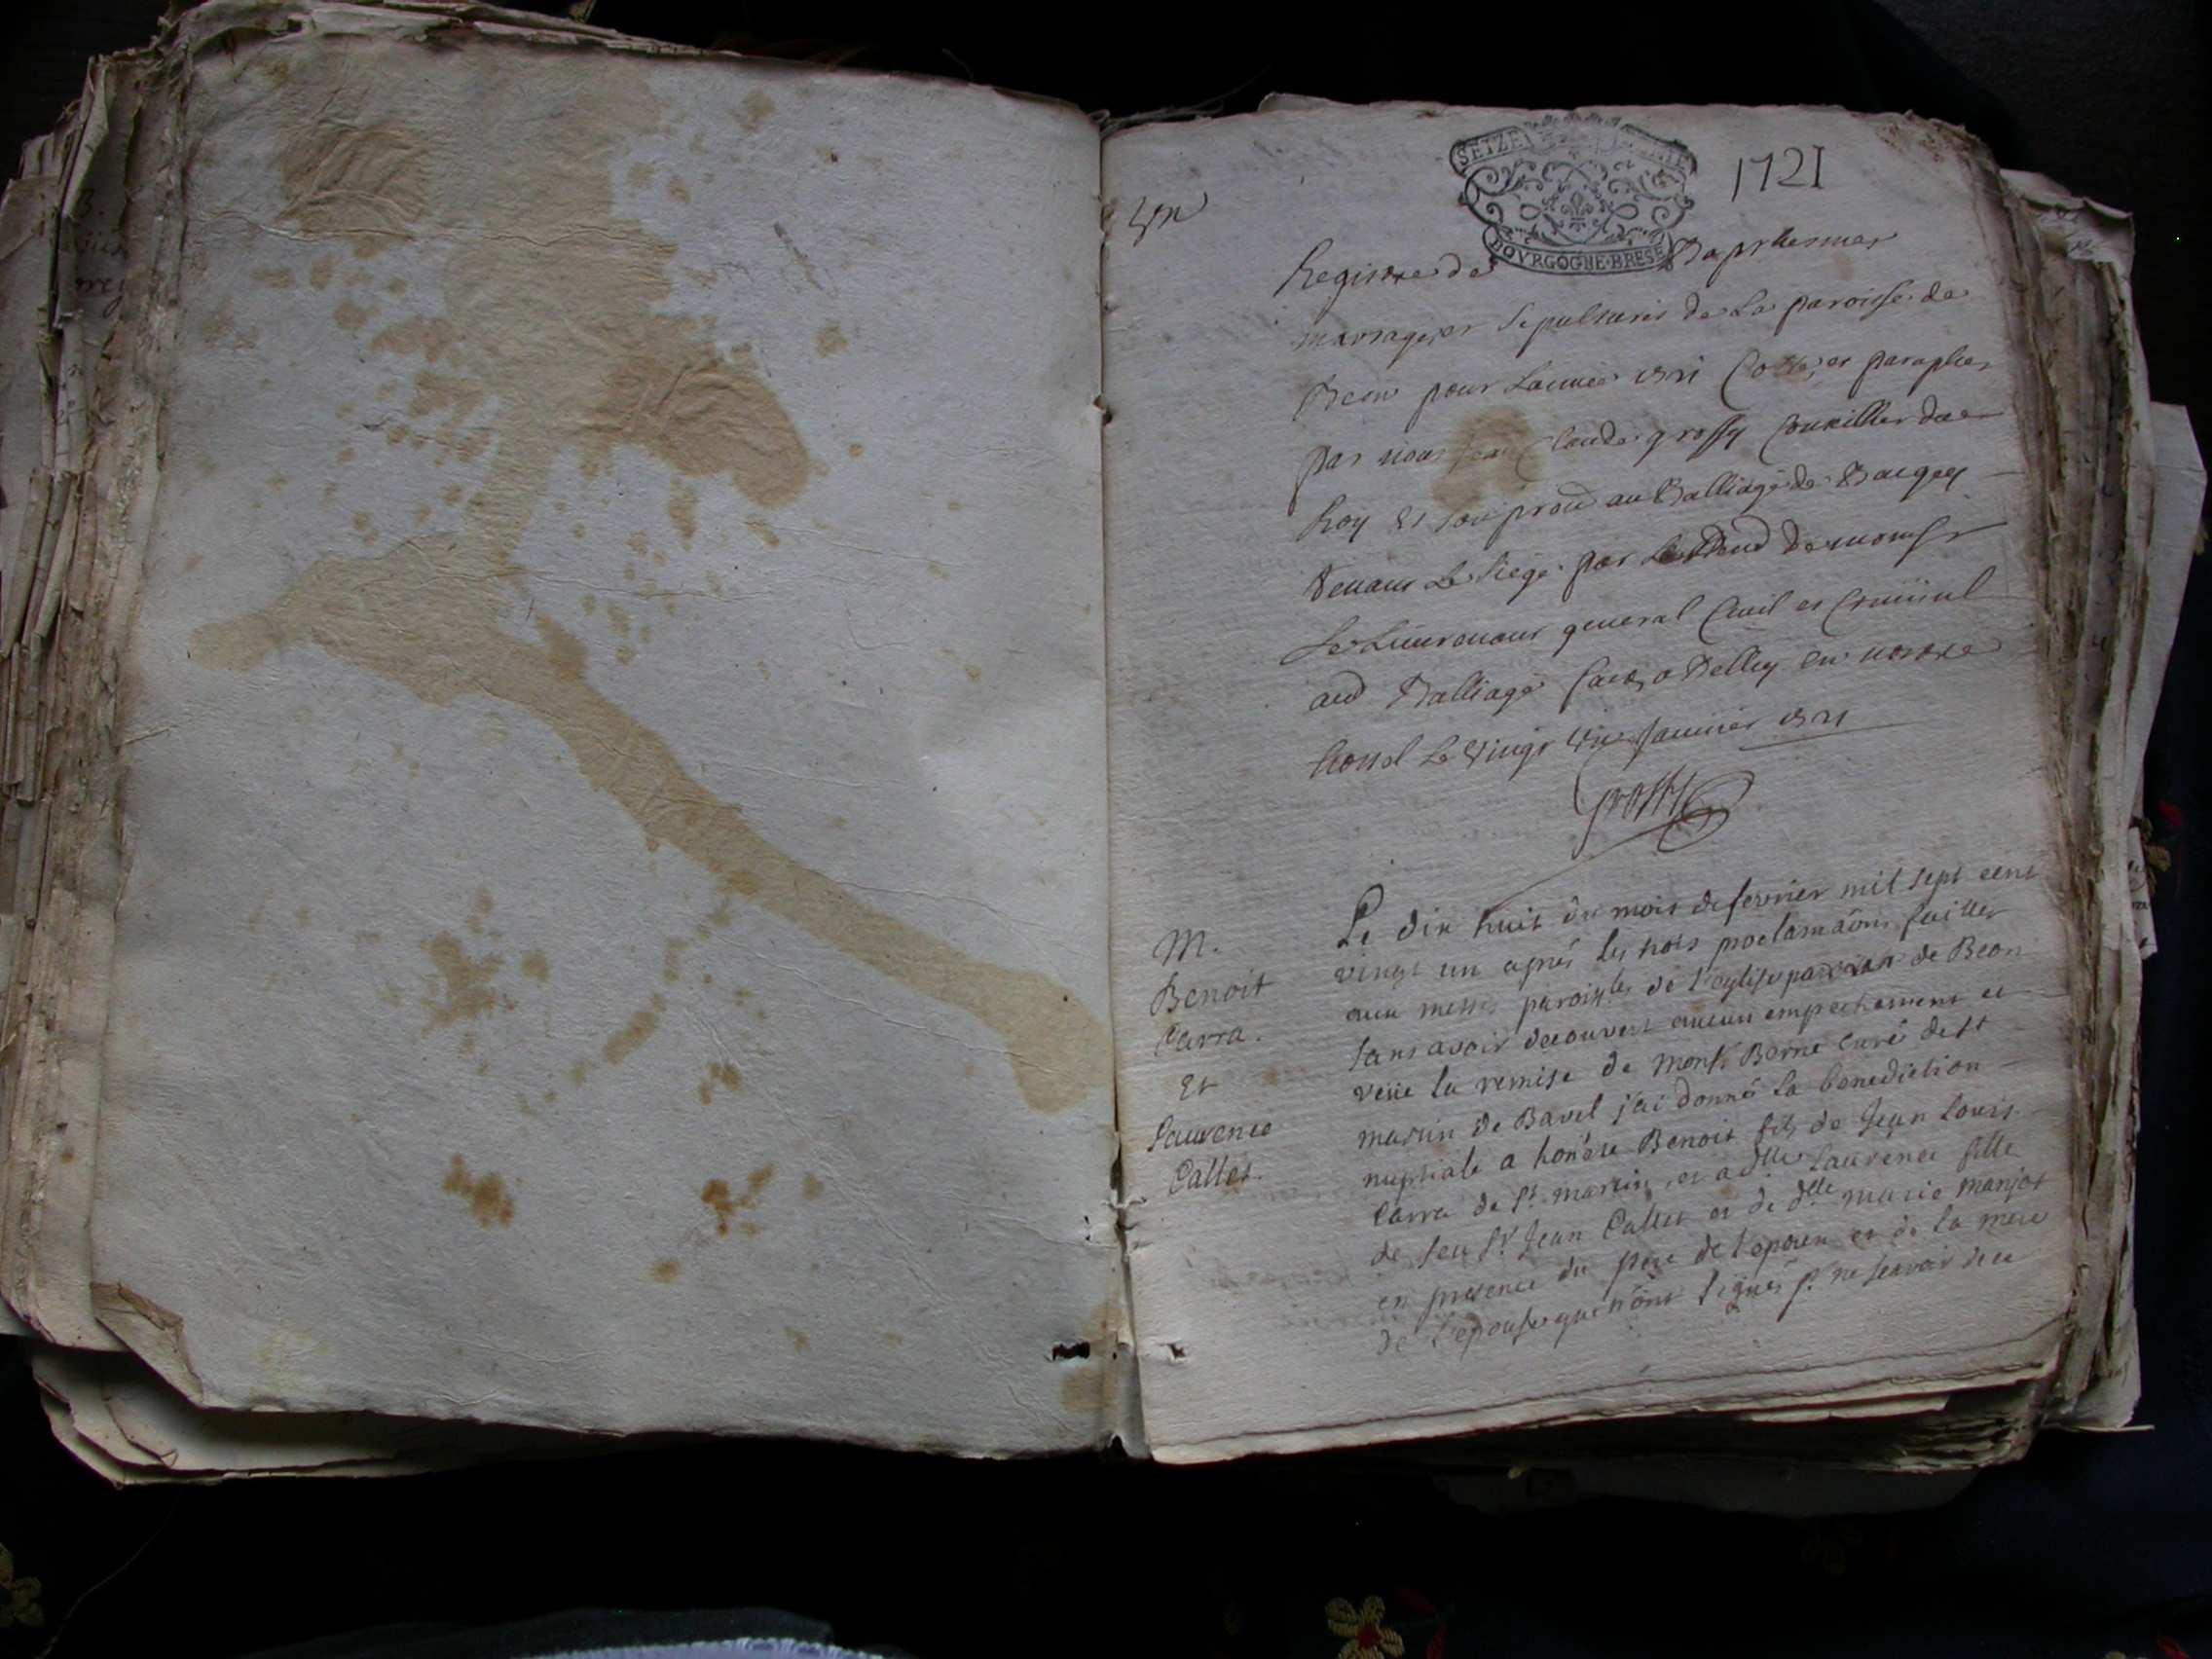 SEIZE
BOVRGOGNE·BRESE
1721
un
Registre de Baptesmes
mariages et sepultures de la paroisse de
Beon pour lannée 1721 Cotté, et paraphé,
par nous Jean Claude grossy Conseiller du
Roy et son au Balliage de Baugey
tenant le siege par
le Lieutenant general Civil et Criminel
aud Balliage faict a Belley en nostre
hostel le vingt un janvier 1721
Grossy
M.
Benoit
Carra.
Et
Laurence
Callet.
Le dix huit du mois de fevrier mil sept cent
vingt un aprés les trois proclamaôns faittes
aux messes paroisles de l'eglise de Beon
sans avoir decouvert aucun empechement et
veüe la remise de Monsr. Borne curé de St
martin de Bavel j'ai donné la benediction
nuptiale a honête Benoit fils de Jean Louis
Carra de St. martin, et a dlle Laurence fille
de feu Sr. Jean Callet et de dlle marie manjot
en presence du pere de l'epoux et de la mere
de l'epouse qui n'ônt signés pr. ne sçavoir de ce